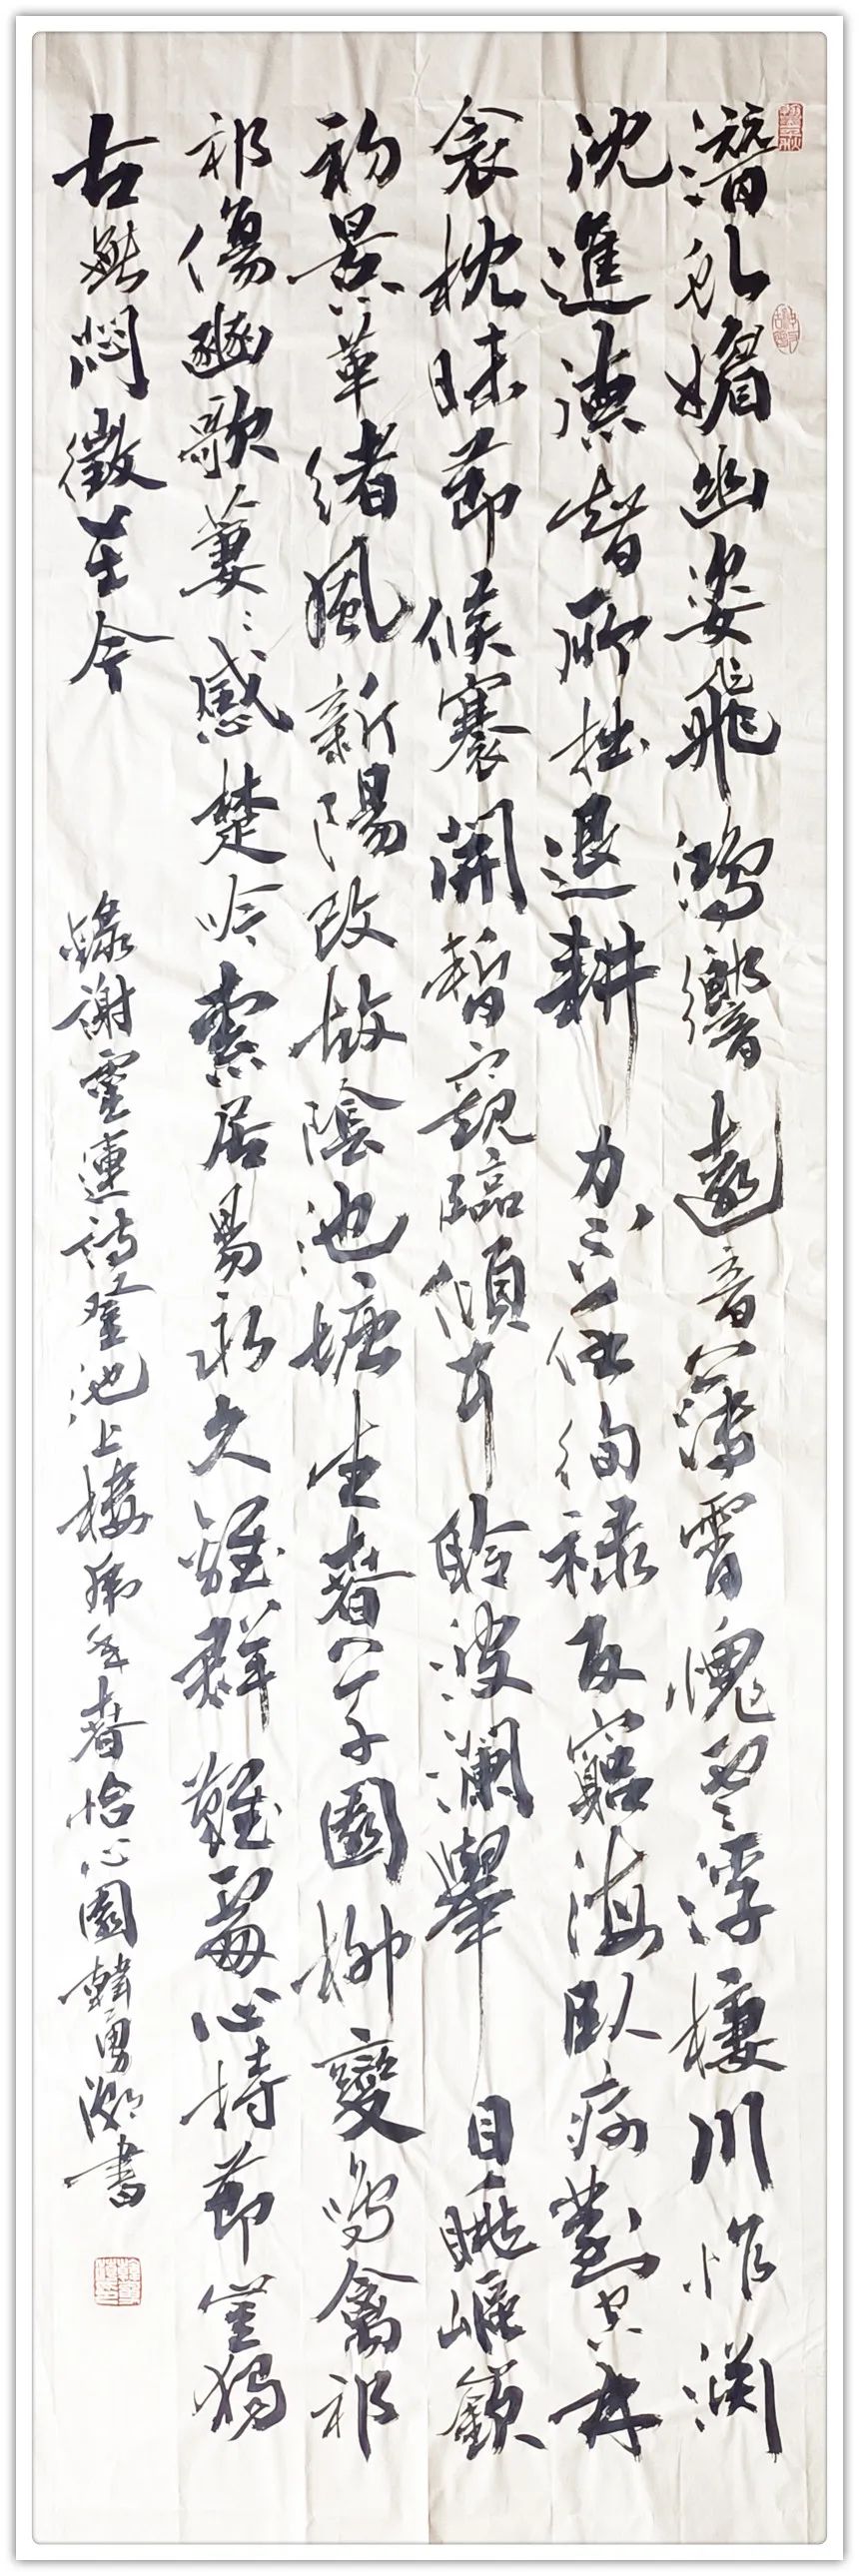 潛虬媚幽姿飛鴻響遠音薄霄愧雲浮棲川怍淵
沈進德智所拙退耕力不任徇祿反窮海臥痾對空林
衾枕昧節候褰開暫窺臨傾耳聆波瀾舉目眺嶇嶔
初景革緒風新陽改故陰池塘生春草園柳變鳴禽祁
祁傷豳歌萋々感楚吟索居易永久離群難處心持節豈獨
古無悶徵在今
錄謝靈運詩登池上樓年春怡心園韓勇書